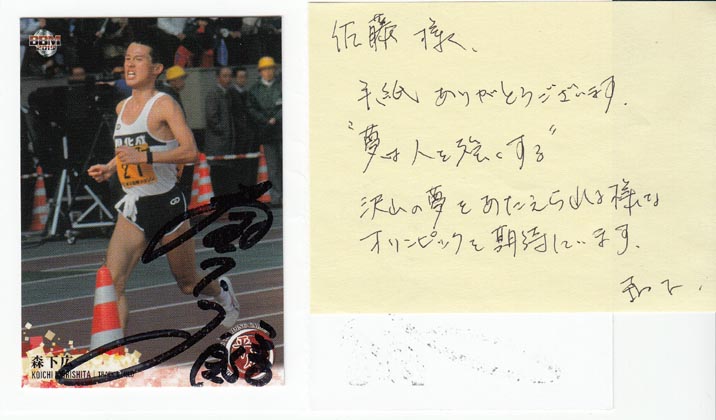 BBM
2015
旭化成
21
森下広
KOICHI MORISHITA
佐藤 様、
手紙 ありがとうございます.
"夢は人を強くする"
沢山の夢をあたえられる様な
オリンピックを期待しています.
森下.